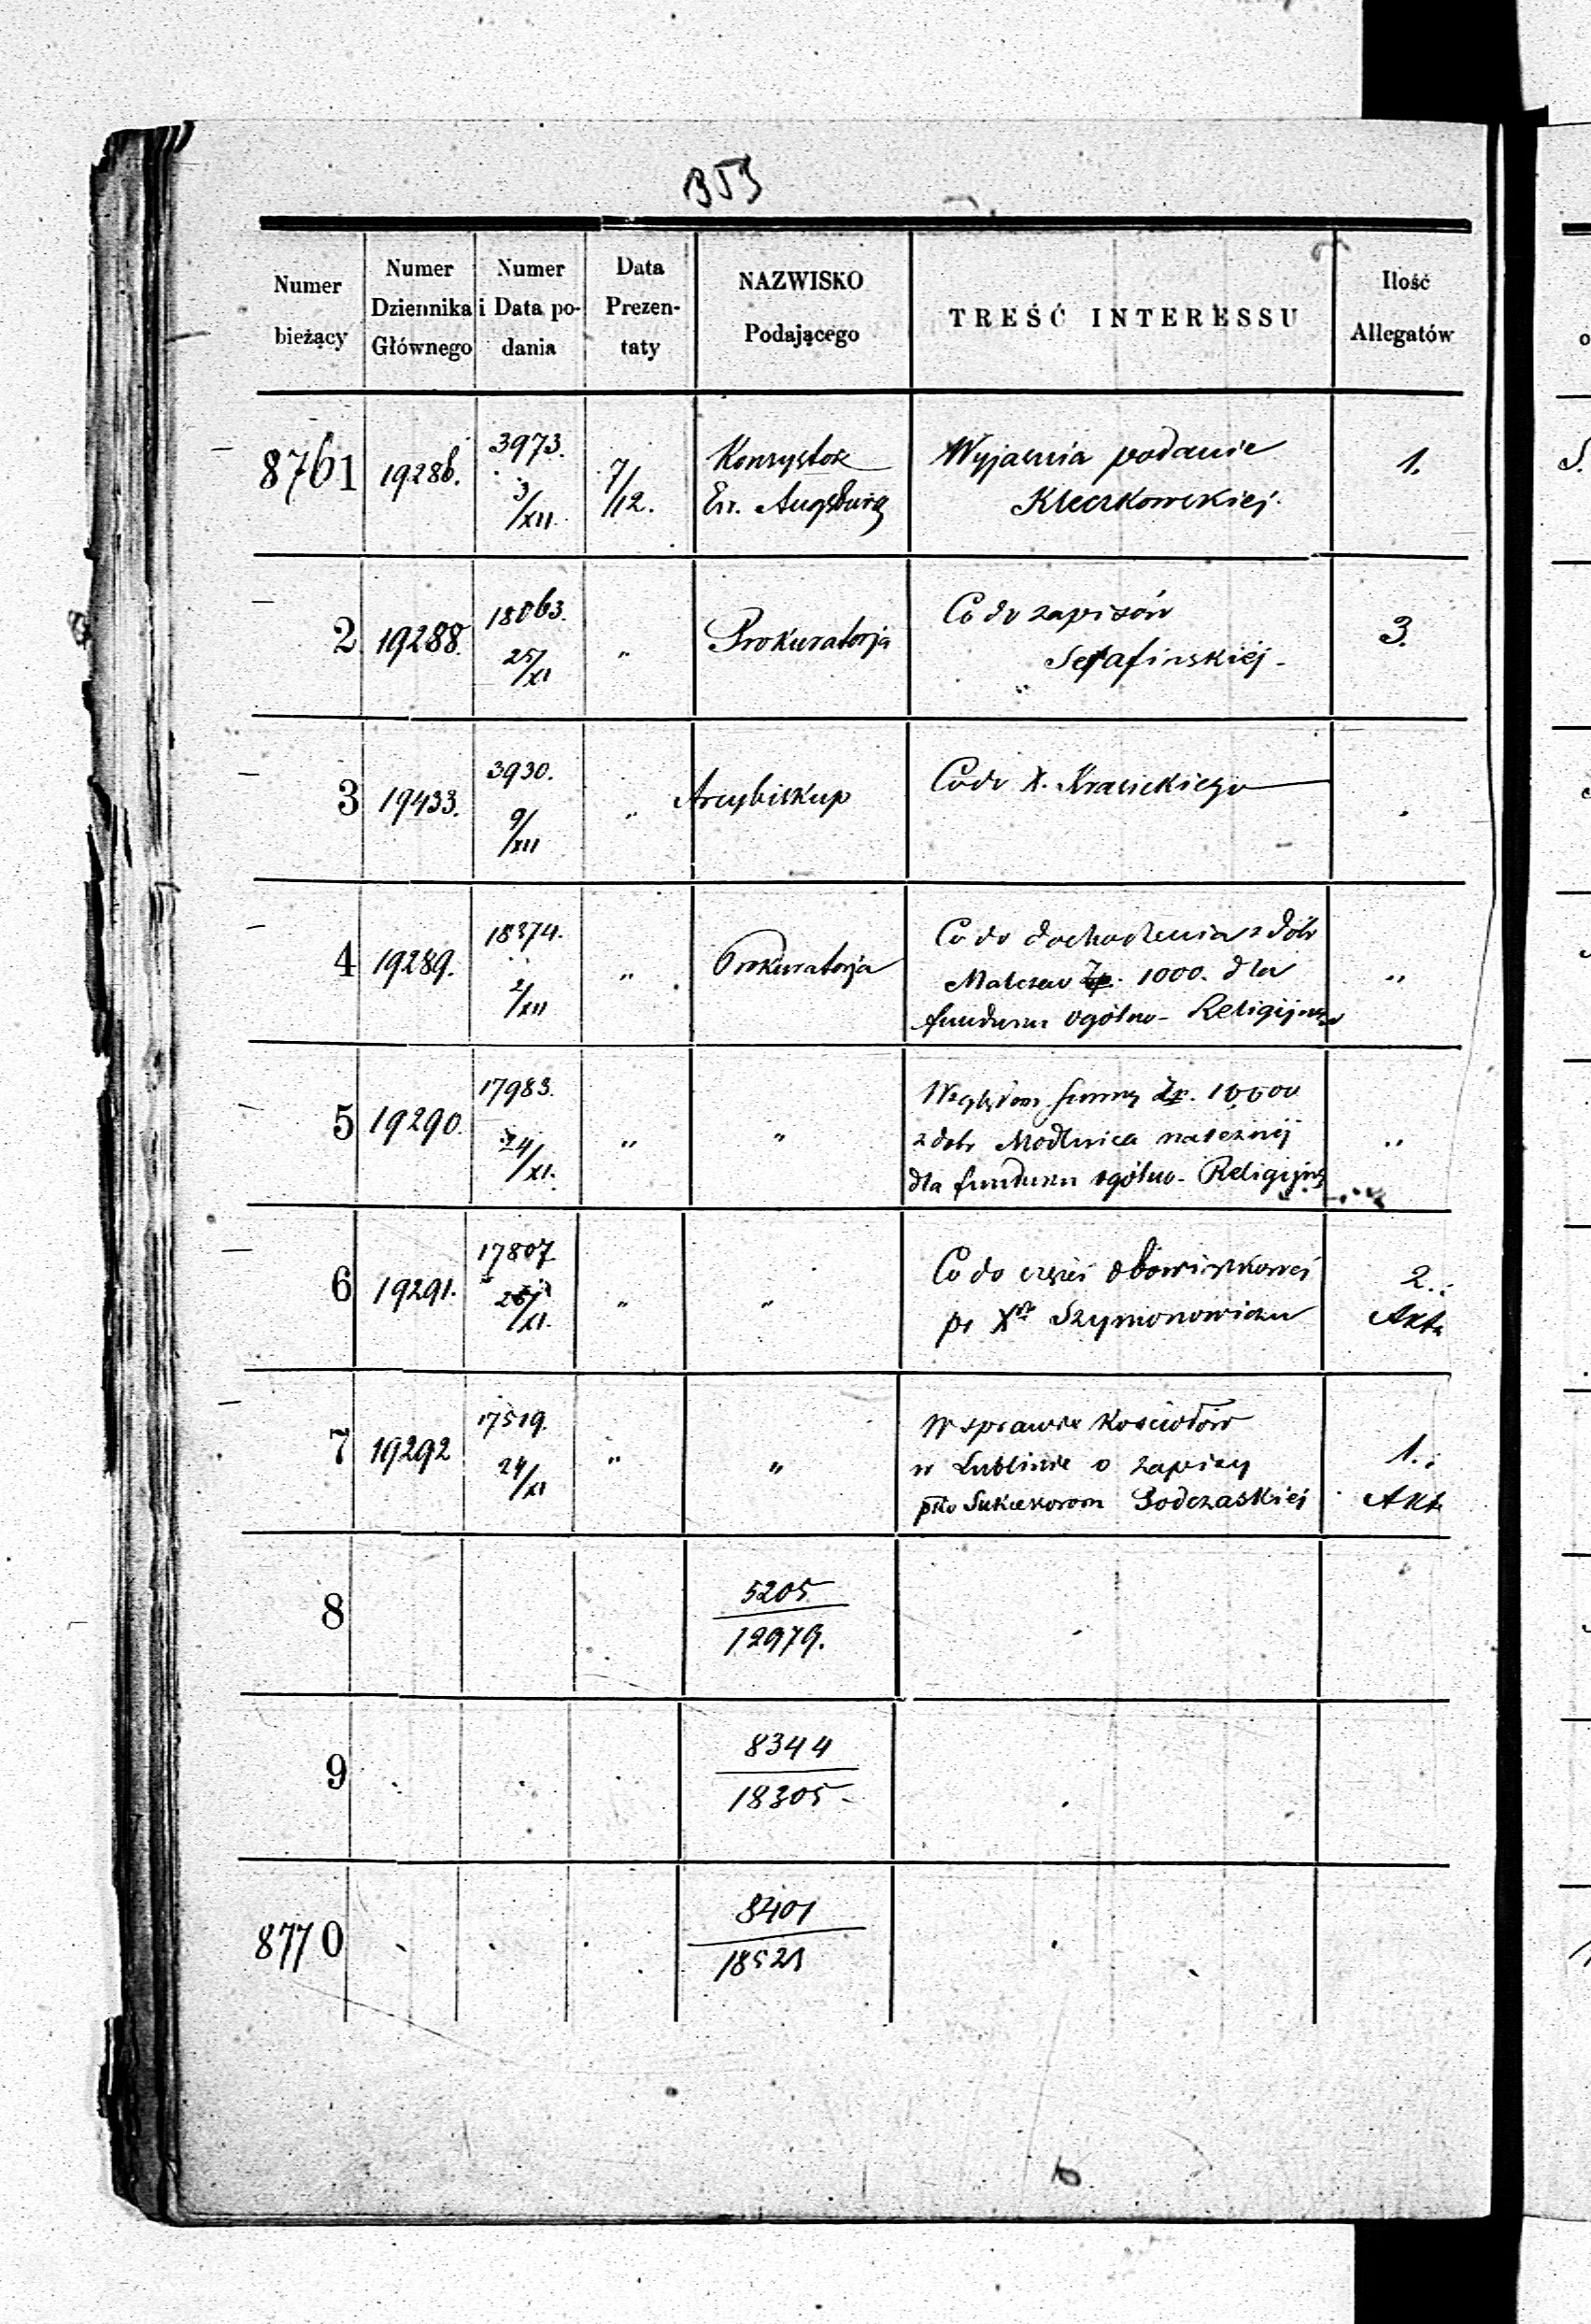 353
Numer bieżący | Numer Dziennika Głównego | Numer i Data podania | Data Prezentaty | NAZWISKO Podającego | TREŚĆ INTERESSU | Ilość Allegatów
8761 | 19286. | 3973. 3/XII. | 7/12. | Konsystorz Ew. Augsburg | Wyjaśnia podanie Kleczkowskiej. | 1.
2 | 19288. | 18063. 25/XI | " | Prokuratorja | Co do zapisów Serafinskiej - | 3.
3 | 19433. | 3930. 9/XII | " | Arcybiskup | Co do X. Krasickiego | .
4 | 19289. | 18374. 2/XII | " | Prokuratorja | Co do dochodzenia z dóbr Malczew Zp. 1000. dla funduszu ogólno- Religijnego | "
5 | 19290. | 17983. 24/XI. | " | " | Względem Summy Zp. 10000 z dóbr Modlnica należnej dla funduszu ogólno- Religijneg | "
6 | 19291. | 17807. /XI. | " | " | Co do części obowiązkowej po Xdz Szymonowiczu | 2. Akta
7 | 19292 | 17519. 24/XI | " | " | W sprawie Kościołów w Lublinie o zapisy pko Sukcesorom Podczaskiej | 1. Akt
8 | 5205 / 12979.
9 | 8344 / 18305 -
8770 | 8401 / 18521